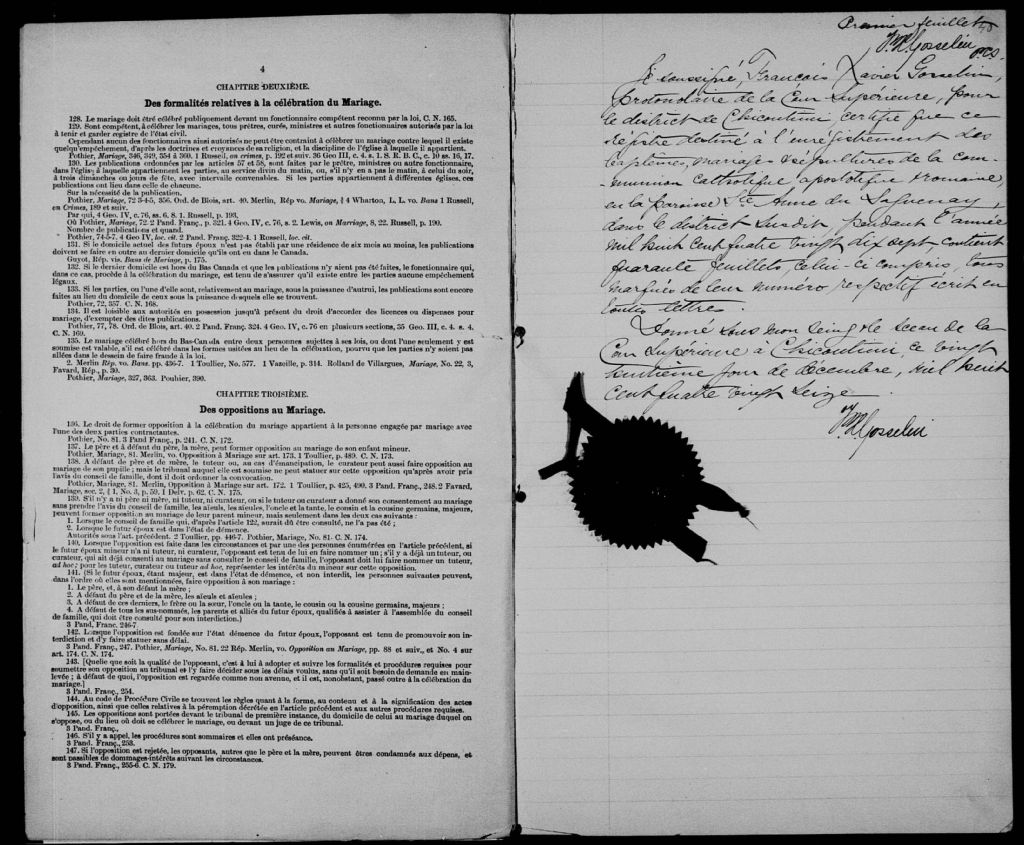 4
CHAPITRE DEUXIÈME.
Des formalités relatives à la célébration du Mariage.
128. Le mariage doit être célébré publiquement devant un fonctionnaire compétent reconnu par la loi, C. N. 165.
129. Sont compétent, à célébrer les mariages, tous prêtres, curés, ministres et autres fonctionnaires autorisés par la loi
à tenir et garder registre de l'état civil.
Cependant aucun des fonctionnaires ainsi autorisés ne peut être contraint à célébrer un mariage contre lequel il existe
quelqu'empêchement, d'après les doctrines et croyances de sa religion, et la discipline de l'église à laquelle il appartient.
Pothier, Mariage, 346, 349, 354 à 360. 1 Russell, on crimes, p. 192 et suiv. 36 Geo III, c. 4. s. 1. S. R. B. C., c. 20 ss. 16, 17.
130. Les publications ordonnées par les articles 57 et 58, sont faites par le prêtre, ministres ou autre fonctionnaire,
dans l'église à laquelle appartiennent les parties, au service divin du matin, ou, s'il n'y en a pas le matin, à celui du soir,
à trois dimanches ou jours de fête, avec intervalle convenables. Si les parties appartiennent à différentes églises, ces
publications ont lieu dans celle de chacune.
Sur la nécessité de la publication.
Pothier, Mariage, 72 3-4-5, 356. Ord. de Blois, art. 40. Merlin, Rép vo. Mariage, § 4 Wharton, L. L. vo. Bans 1 Russell,
en Crimes, 189 et suiv.
Par qui, 4 Geo. IV, c. 76, ss. 6. 8. 1. Russell, p. 193.
Où Pothier, Mariage, 72. 2 Pand. Franç., p. 321. 4 Geo. IV, c. 76, s. 2. Lewis, on Marriage, 8, 22. Russell, p. 190.
Nombre de publications et quand.
Pothier, 74-5-7. 4 Geo IV, loc. cit. 2 Pand. Franç. 322-4. 1 Russell, loc. cit.
131. Si le domicile actuel des futurs époux n'est pas établi par une résidence de six mois au moins, les publications
doivent se faire en outre au dernier domicile qu'ils ont eu dans le Canada.
Guyot, Rép. vis. Bans de Mariage, p. 175.
132. Si le dernier domicile est hors du Bas Canada et que les publications n'y aient pas été faites, le fonctionnaire qui,
dans ce cas, procède à la célébration du mariage, est tenu de s'assurer qu'il existe entre les parties aucune empêchement
légaux.
133. Si les parties, ou l'une d'elle sont, relativement au mariage, sous la puissance d'autrui, les publications sont encore
faites au lieu du domicile de ceux sous la puissance desquels elle se trouvent.
Pothier, 72, 357. C. N. 168.
134. Il est loisible aux autorités en possession jusqu'à présent du droit d'accorder des licences ou dispenses pour
mariage, d'exempter des dites publications.
Pothier, 77, 78. Ord. de Blois, art. 40. 2 Pand. Franç. 324. 4 Geo. IV, c. 76 en plusieurs sections, 35 Geo. III, c. 4. s. 4.
C. N. 169.
135. Le mariage célébré hors du Bas-Canada entre deux personnes sujettes à ses lois, ou dont l'une seulement y est
soumise est valable, s'il est célébré dans les formes usitées au lieu de la célébration, pourvu que les parties n'y soient pas
allées dans le dessein de faire fraude à la loi.
2. Merlin Rép. vo. Bans, pp. 436-7. 1 Toullier, No. 577. 1 Vazeille, p. 314. Rolland de Villargues, Mariage, No. 22, 3,
Favard, Rép., p. 30.
Pothier, Mariage, 327, 363. Pouhier, 390.
CHAPITRE TROISIÈME.
Des oppositions au Mariage.
136. Le droit de former opposition à la célébration du mariage appartient à la personne engagée par mariage avec
l'une des deux parties contractantes.
Pothier, No. 81. 3 Pand Franç., p. 241. C. N. 172.
137. Le père et à défaut du père, la mère, peut former opposition au mariage de son enfant mineur.
Pothier, Mariage, 81. Merlin, vo. Opposition à Mariage sur art. 173. 1 Toullier, p. 489. C. N. 173.
138. A défaut de père et de mère, le tuteur ou, au cas d'émancipation, le curateur peut aussi faire opposition au
mariage de son pupille; mais le tribunal auquel elle est soumise ne peut statuer sur cette opposition qu'après avoir pris
l'avis du conseil de famille, dont il doit ordonner la convocation.
Pothier, Mariage, 81. Merlin, Opposition à Mariage sur art. 172. 1 Toullier, p. 425, 490. 3 Pand. Franç., 248. 2 Favard,
Mariage, sec. 2, § 1, No. 3, p. 59. 1 Delv. p. 62. C. N. 175.
139. S'il n'y a ni père ni mère, ni tuteur, ni curateur, ou si le tuteur ou curateur a donné son consentement au mariage
sans prendre l'avis du conseil de famille, les aïeuls, les aïeules, l'oncle et la tante, le cousin et la cousine germains, majeurs,
peuvent former opposition au mariage de leur parent mineur, mais seulement dans les deux cas suivants :
1. Lorsque le conseil de famille qui, d'après l'article 122, aurait dû être consulté, ne l'a pas été ;
2. Lorsque le futur époux est dans l'état de démence.
Autorités sous l'art. précédent. 2 Toullier, pp. 446-7. Pothier, Mariage, No. 81- C. N. 174.
140. Lorsque l'opposition est faite dans les circonstances et par une des personnes énumérées en l'article précédent, si
le futur époux mineur n'a ni tuteur, ni curateur, l'opposant est tenu de lui en faire nommer un; s'il y a déjà un tuteur, ou
curateur, qui ait déjà consenti au mariage sans consulter le conseil de famille, l'opposant doit lui faire nommer un tuteur,
ad hoc; pour les tuteur, curateur ou tuteur ad hoc, représenter les intérêts du mineur sur cette opposition.
141. (Si le futur époux, étant majeur, est dans l'état de démence, et non interdit, les personnes suivantes peuvent,
dans l'ordre où elles sont mentionnées, faire opposition à son mariage :
1. Le père, et, à son défaut la mère ;
2. A défaut du père et de la mère, les aïeuls et aïeules ;
3. A défaut de ces derniers, le frère ou la sœur, l'oncle ou la tante, le cousin ou la cousine germains, majeurs ;
4. A défaut de tous les sus-nommés, les parents et alliés du futur époux, qualifiés à assister à l'assemblée du conseil
de famille, qui doit être consulté pour son interdiction.)
3 Pand, Franc. 246-7.
142. Lorsque l'opposition est fondée sur l'état démence du futur époux, l'opposant est tenu de promouvoir son in-
terdiction et d'y faire statuer sans délai.
3 Pand. Franç., 247. Pothier, Mariage, No. 81. 22 Rép. Merlin, vo. Opposition au Mariage, pp. 88 et suiv., et No. 4 sur
art. 174. C. N. 174.
143. [Quelle que soit la qualité de l'opposant, c'est à lui à adopter et suivre les formalités et procédures requises pour
soumettre son opposition au tribunal et l'y faire décider sous les délais voulus, sans qu'il soit besoin de demande en main-
levée ; à défaut de quoi, l'opposition est regardée comme non avenue, et il est, nonobstant, passé outre à la célébration du
mariage.]
3 Pand. Franç., 254.
144. Au code de Procédure Civile se trouvent les règles quant à la forme, au contenu et à la signification des actes
d'opposition, ainsi que celles relatives à la péremption décrétée en l'article précédent et aux autres procédures requises.
145. Les oppositions sont portées devant le tribunal de première instance, du domicile de celui au mariage duquel on
s'oppose, ou du lieu où doit se célébrer le mariage, ou devant un juge de ce tribunal.
3 Pand. Franç.,
146. S'il y a appel, les procédures sont sommaires et elles ont préséance.
3 Pand. Franç., 253.
147. Si l'opposition est rejetée, les opposants, autres que le père et la mère, peuvent êtres condamnés aux dépens, et
sont passibles de dommages-intérêts suivant les circonstances.
3 Pand. Franç., 255-6. C. N. 179.
Premier feuillet
F. X. Gosselin
P.C.S.
Je soussigné, François Xavier Gosselin,
protonotaire de la Cour Supérieure, pour
le district de Chicoutimi, certifie que ce
régistre destiné à l'enrégistrement des
baptêmes, mariages & sépultures de la com-
munion catholique apostolique & romaine,
en la paroisse Ste Anne du Saguenay,
dans le district susdit, pendant l'année
mil huit cent quatre vingt dix sept, contient
quarante feuillets, celui-ci compris, tous
marqués de leur numéro respectif écrit en
toutes lettres.
Donné sous mon seing & le sceau de la
Cour Supérieure à Chicoutimi, ce vingt
huitième jour de décembre, mil huit
cent quatre vingt seize.
F. X. Gosselin